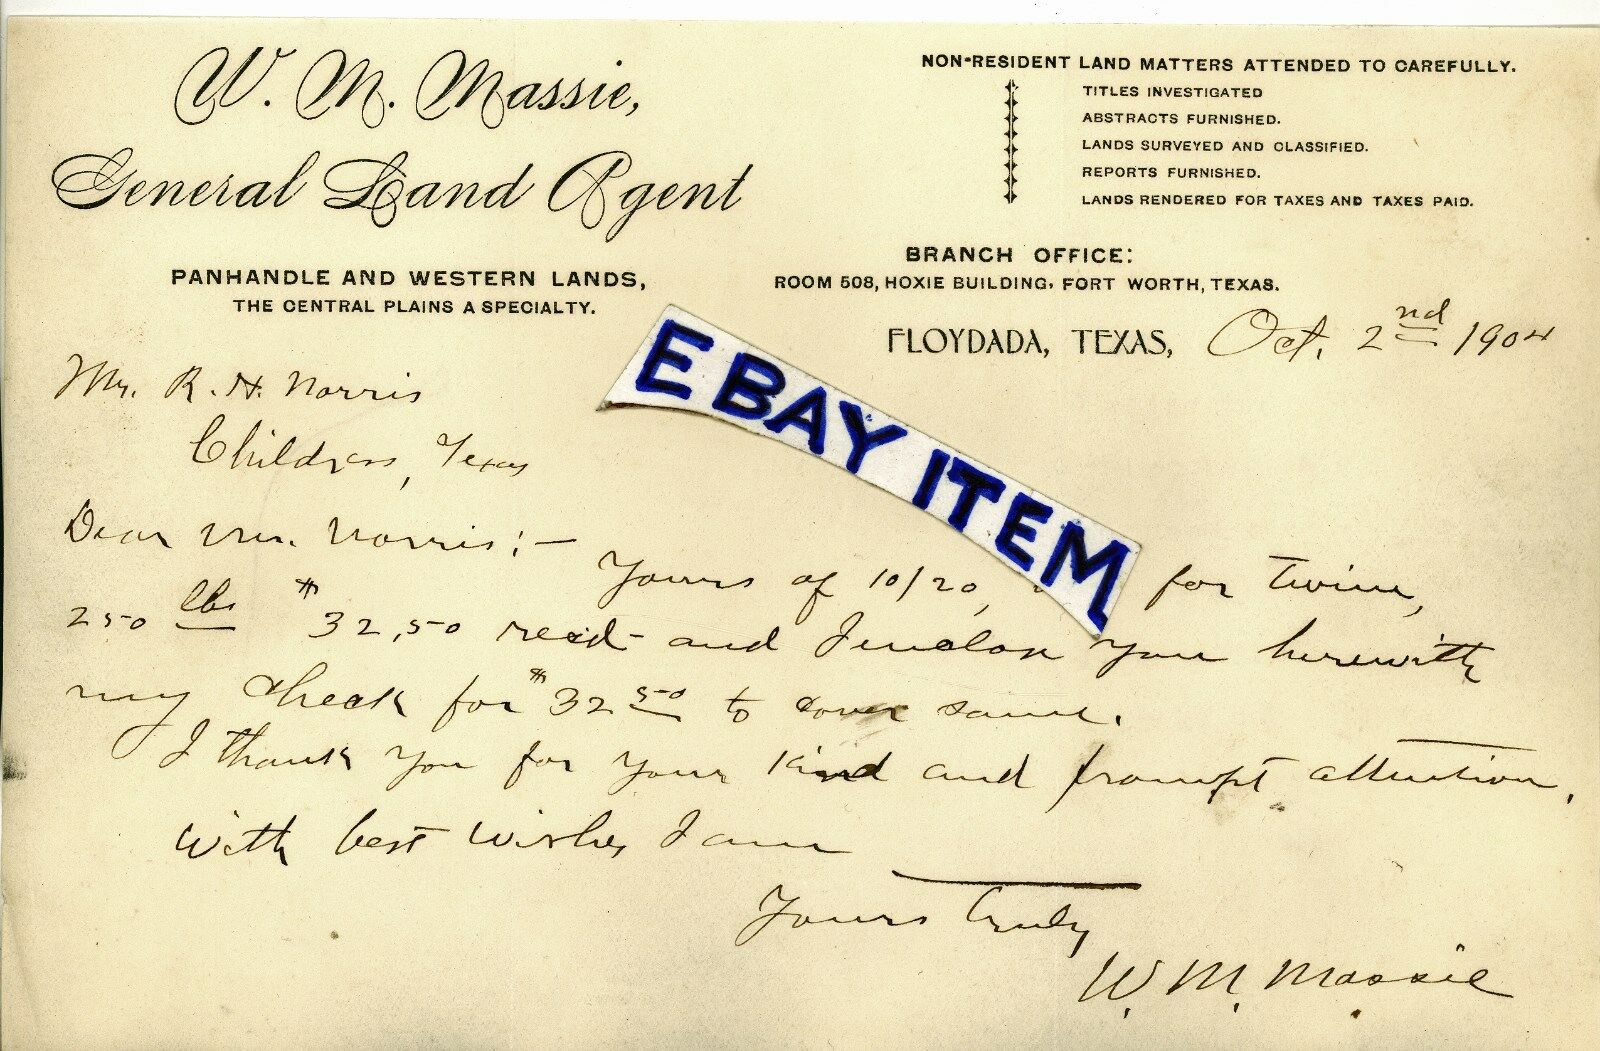 W. M. Massie,
General Land Agent
PANHANDLE AND WESTERN LANDS,
THE CENTRAL PLAINS A SPECIALTY.
NON-RESIDENT LAND MATTERS ATTENDED TO CAREFULLY.
TITLES INVESTIGATED
ABSTRACTS FURNISHED.
LANDS SURVEYED AND CLASSIFIED.
REPORTS FURNISHED.
LANDS RENDERED FOR TAXES AND TAXES PAID.
BRANCH OFFICE:
ROOM 508, HOXIE BUILDING, FORT WORTH, TEXAS.
FLOYDADA, TEXAS, Oct. 2nd 1904
EBAY ITEM
Mr. R. H. Norris
Childress, Texas
Dear Mr. Norris:-
Yours of 10/20, for twine,
250 lbs $32.50 recd- and I enclose you herewith
my check for $32 50 to cover same.
I thank you for your kind and prompt attention.
With best wishes I am
Yours truly
W. M. Massie